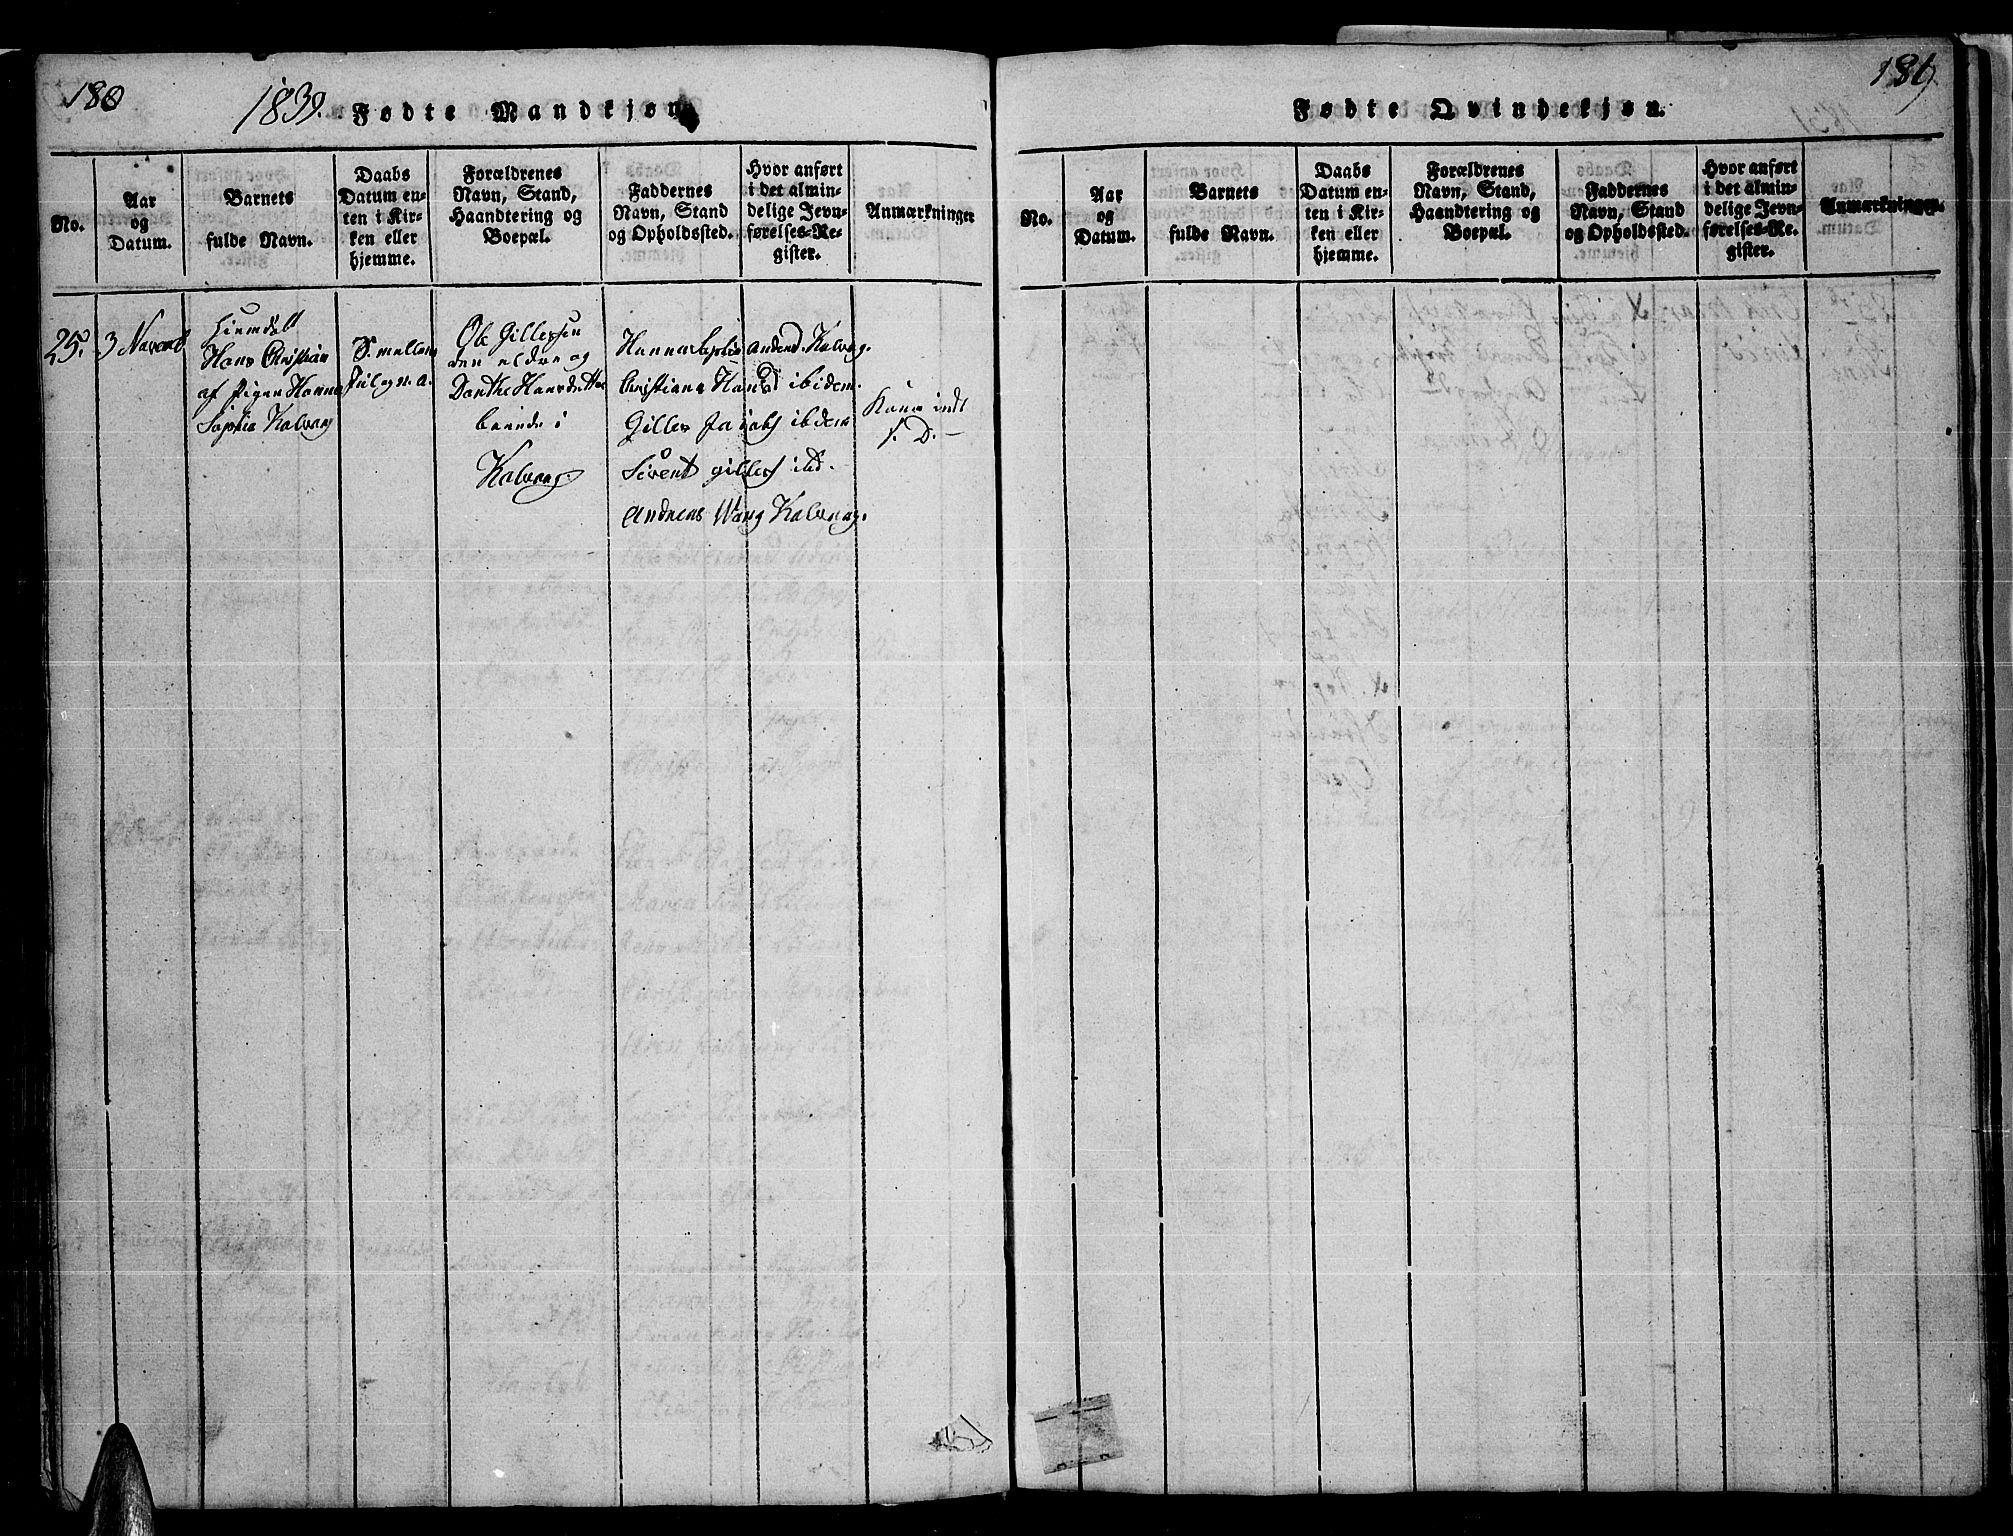 180
1839. Fødte Mandkjøn
No.
Aar
og
Datum.
Barnets
fulde Navn.
Daabs
Datum en-
ten i Kir-
ken eller
hjemme.
Forældrenes
Navn, Stand,
Haandtering og
Boepæl.
Faddernes
Navn, Stand
og Opholdssted.
Hvor anført
i det almin-
delige Jevn-
førelses-Re-
gister.
Anmærkninger
25.
3 Novemb
Hiemdøbt
Hans Christian
af Pigen Hanna
Sophia Kalvaag
S. mellem
Jul og n. a.
Ole Gillessen
den eldre og
Dorthe Hansdatter
boende i
Kalvaag
Hanna Sophia Andersd. Kalvaag.
Christiana Hansd ibidem.
Gilles Jacobs ibidem
Sivert Gilless ibid.
Andreas Waag Kalvaag.
Kone indt
s. D.
189
Fødte Qvindekjøn.
No.
Aar
og
Datum.
Barnets
fulde Navn.
Daabs
Datum en-
ten i Kir-
ken eller
hjemme.
Forældrenes
Navn, Stand,
Haandtering og
Boepæl.
Faddernes
Navn, Stand
og Opholdssted.
Hvor anført
i det almin-
delige Jevn-
førelses-Re-
gister.
Anmærkninger.